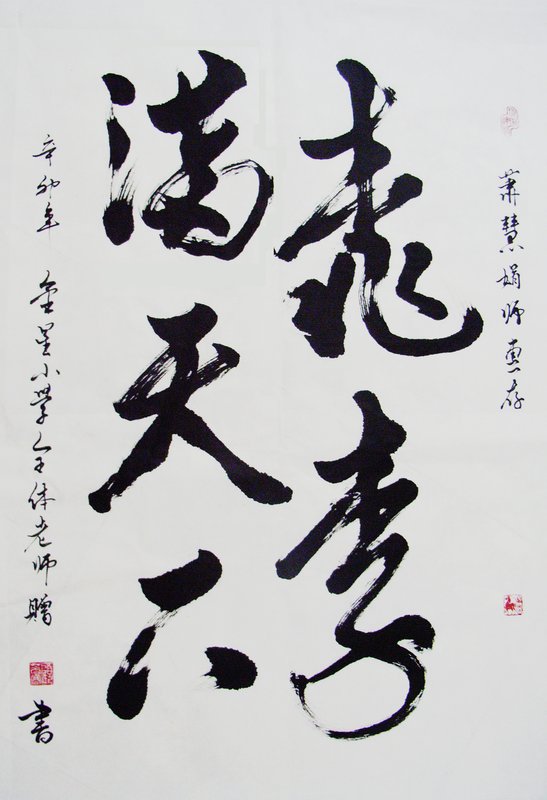 蕭慧娟师惠存
桃李
满天下
辛卯年 金星小学全体老师赠
書